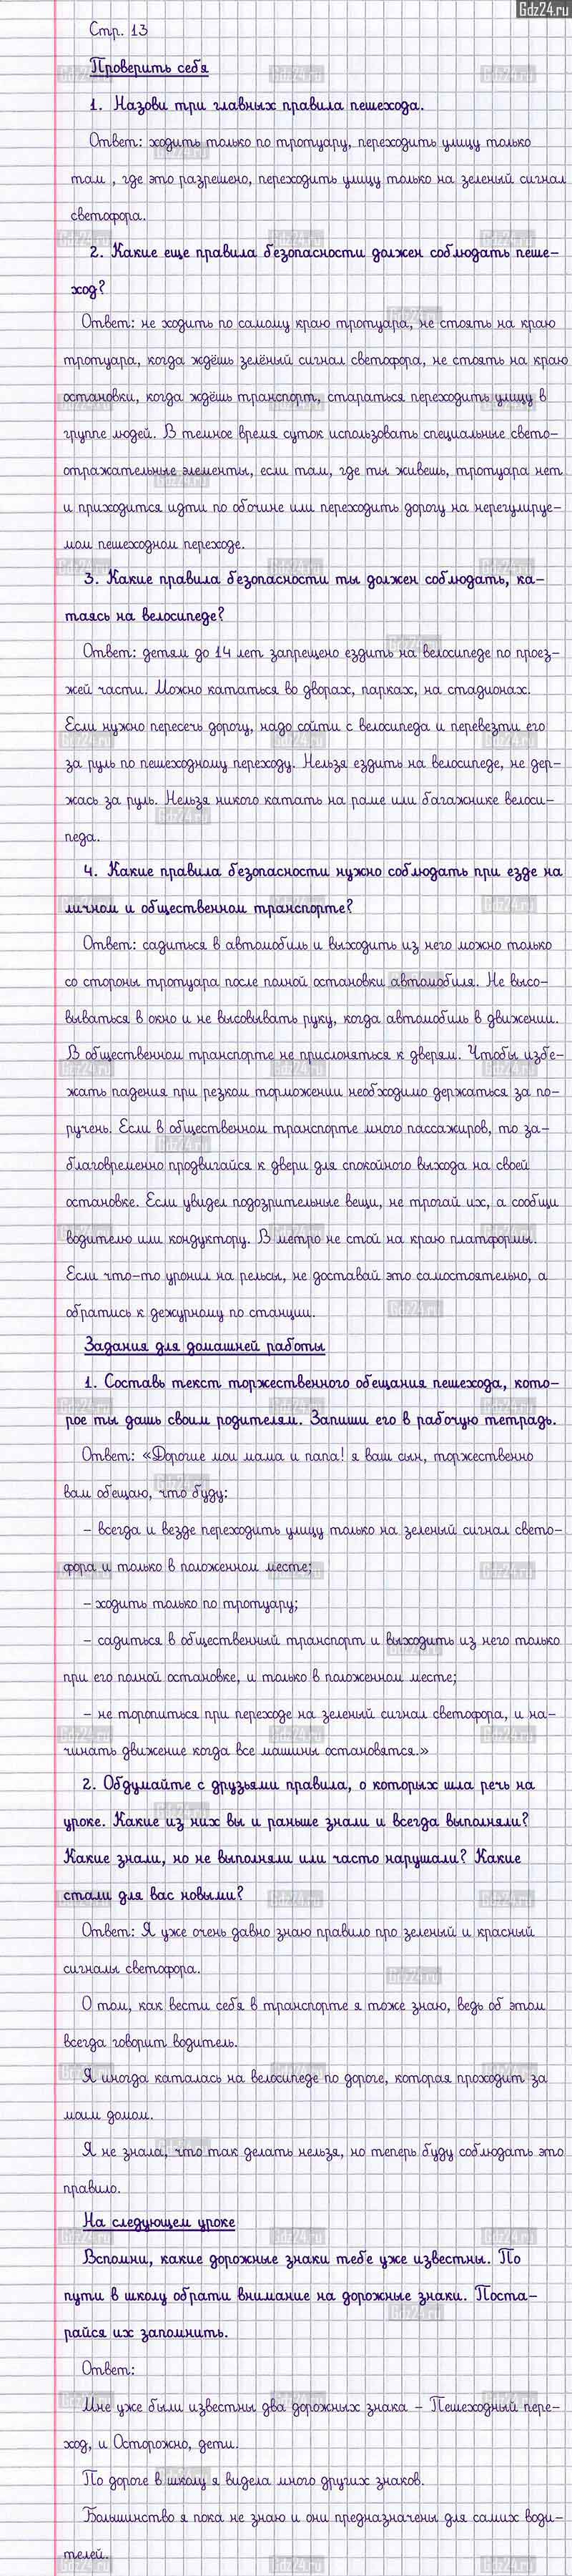 Gdz24.ru
Стр. 13
Проверить себя
1. Назови три главных правила пешехода.
Ответ: ходить только по тротуару, переходить улицу только
там , где это разрешено, переходить улицу только на зеленый сигнал
светофора.
2. Какие еще правила безопасности должен соблюдать пеше-
ход?
Ответ: не ходить по самому краю тротуара, не стоять на краю
тротуара, когда ждёшь зелёный сигнал светофора, не стоять на краю
остановки, когда ждёшь транспорт, стараться переходить улицу в
группе людей. В темное время суток использовать специальные свето-
отражательные элементы, если там, где ты живешь, тротуара нет
и приходится идти по обочине или переходить дорогу на нерегулируе-
мом пешеходном переходе.
3. Какие правила безопасности ты должен соблюдать, ка-
таясь на велосипеде?
Ответ: детям до 14 лет запрещено ездить на велосипеде по проез-
жей части. Можно кататься во дворах, парках, на стадионах.
Если нужно пересечь дорогу, надо сойти с велосипеда и перевезти его
за руль по пешеходному переходу. Нельзя ездить на велосипеде, не дер-
жась за руль. Нельзя никого катать на раме или багажнике велоси-
педа.
4. Какие правила безопасности нужно соблюдать при езде на
личном и общественном транспорте?
Ответ: садиться в автомобиль и выходить из него можно только
со стороны тротуара после полной остановки автомобиля. Не высо-
вываться в окно и не высовывать руку, когда автомобиль в движении.
В общественном транспорте не прислоняться к дверям. Чтобы избе-
жать падения при резком торможении необходимо держаться за по-
ручень. Если в общественном транспорте много пассажиров, то за-
благовременно продвигайся к двери для спокойного выхода на своей
остановке. Если увидел подозрительные вещи, не трогай их, а сообщи
водителю или кондуктору. В метро не стой на краю платформы.
Если что-то уронил на рельсы, не доставай это самостоятельно, а
обратись к дежурному по станции.
Задания для домашней работы
1. Составь текст торжественного обещания пешехода, кото-
рое ты дашь своим родителям. Запиши его в рабочую тетрадь.
Ответ: «Дорогие мои мама и папа! я ваш сын, торжественно
вам обещаю, что буду:
- всегда и везде переходить улицу только на зеленый сигнал свето-
фора и только в положенном месте;
- ходить только по тротуару;
- садиться в общественный транспорт и выходить из него только
при его полной остановке, и только в положенном месте;
- не торопиться при переходе на зеленый сигнал светофора, и на-
чинать движение когда все машины остановятся.»
2. Обдумайте с друзьями правила, о которых шла речь на
уроке. Какие из них вы и раньше знали и всегда выполняли?
Какие знали, но не выполняли или часто нарушали? Какие
стали для вас новыми?
Ответ: Я уже очень давно знаю правило про зеленый и красный
сигналы светофора.
О том, как вести себя в транспорте я тоже знаю, ведь об этом
всегда говорит водитель.
Я иногда каталась на велосипеде по дороге, которая проходит за
моим домом.
Я не знала, что так делать нельзя, но теперь буду соблюдать это
правило.
На следующем уроке
Вспомни, какие дорожные знаки тебе уже известны. По
пути в школу обрати внимание на дорожные знаки. Поста-
райся их запомнить.
Ответ:
Мне уже были известны два дорожных знака - Пешеходный пере-
ход, и Осторожно, дети.
По дороге в школу я видела много других знаков.
Большинство я пока не знаю и они предназначены для самих води-
телей.